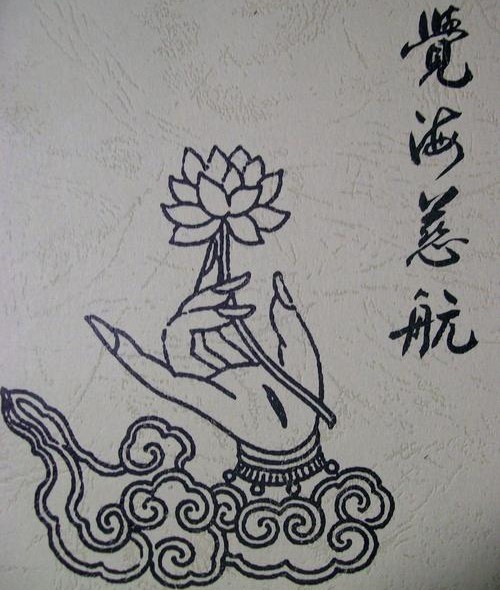 覺海慈航